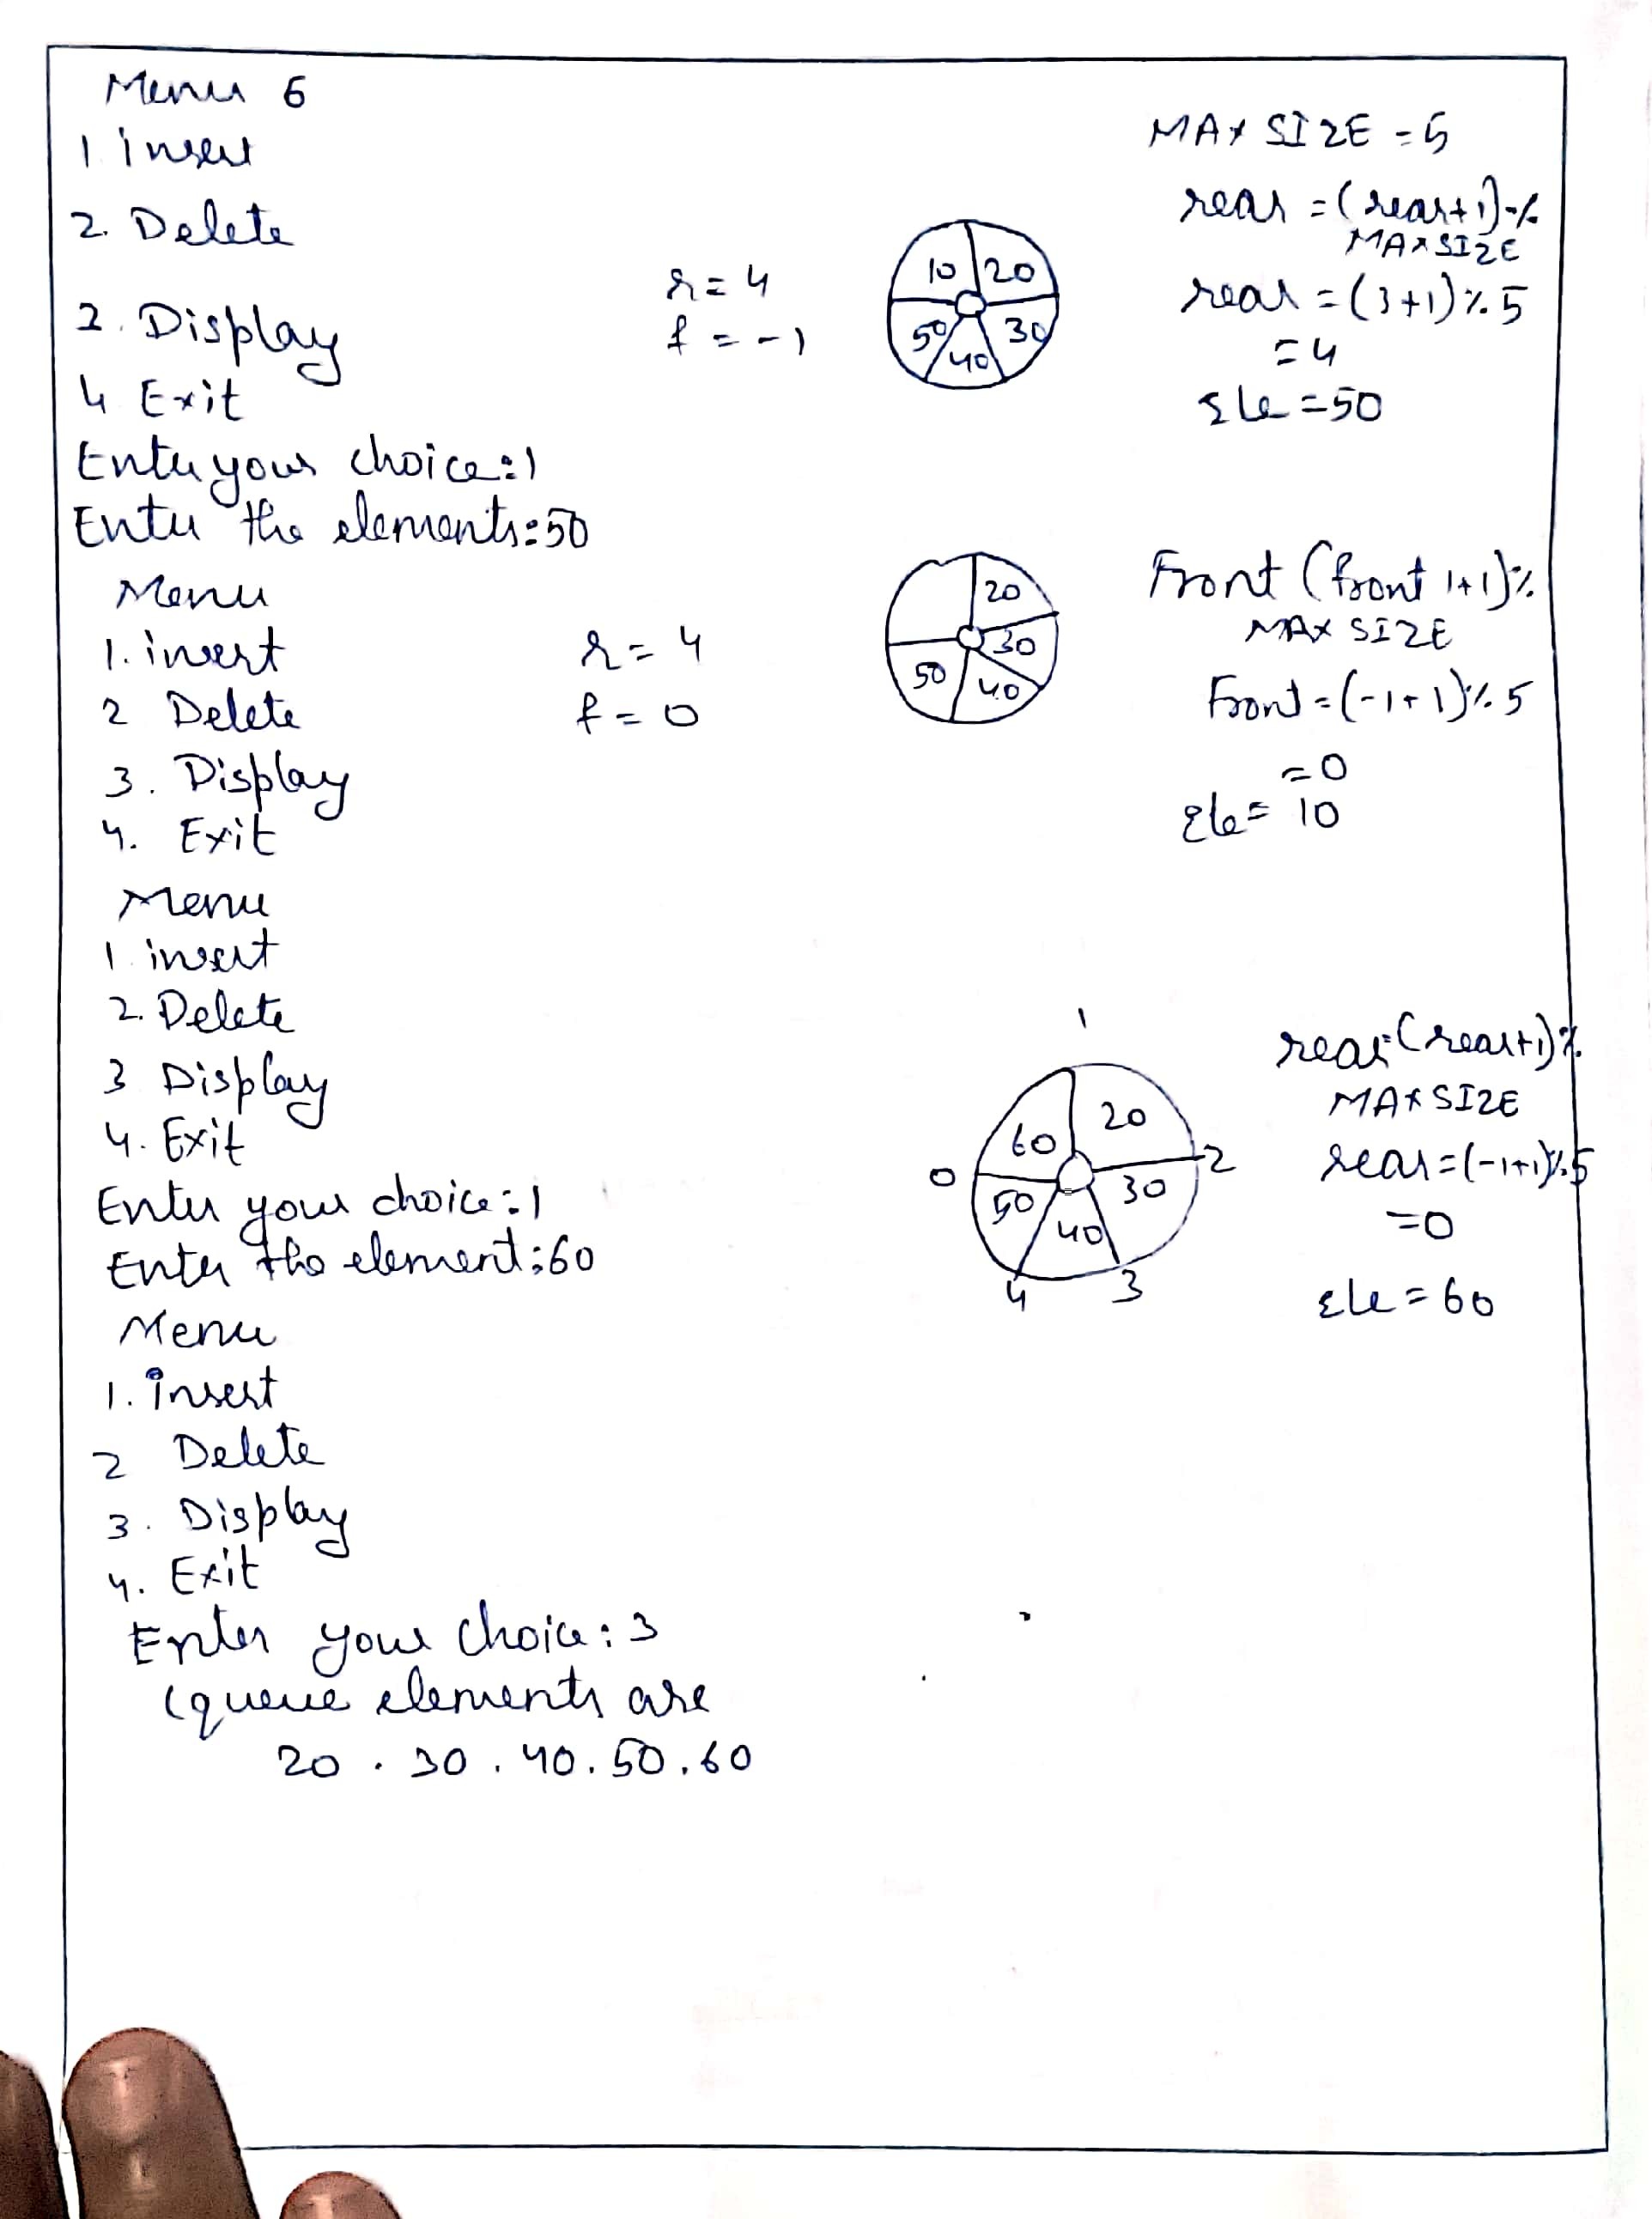 Menu 6
1. insert
2. Delete
2. Display
4 Exit
Enter your choice:1
Enter the elements:50
r=4
f=-1
10 20
50 40 30
MAX SIZE =5
rear =(rear+1)%
MAXSIZE
rear =(3+1)%5
=4
Ele =50
Menu
1. insert
2 Delete
3. Display
4. Exit
r=4
f=0
20
30
50 40
Front (front 1+1)%
MAX SIZE
Front=(-1+1)%5
=0
Ele= 10
Menu
1. insert
2. Delete
3 Display
4. Exit
Enter your choice:1
Enter the element:60
1
60 20
0 2
50 40 30
4 3
rear=(rear+1)%
MAXSIZE
rear=(-1+1)%5
=0
Ele=60
Menu
1. insert
2 Delete
3. Display
4. Exit
Enter your choice:3
(queue elements are
20 . 30 . 40 . 50 . 60